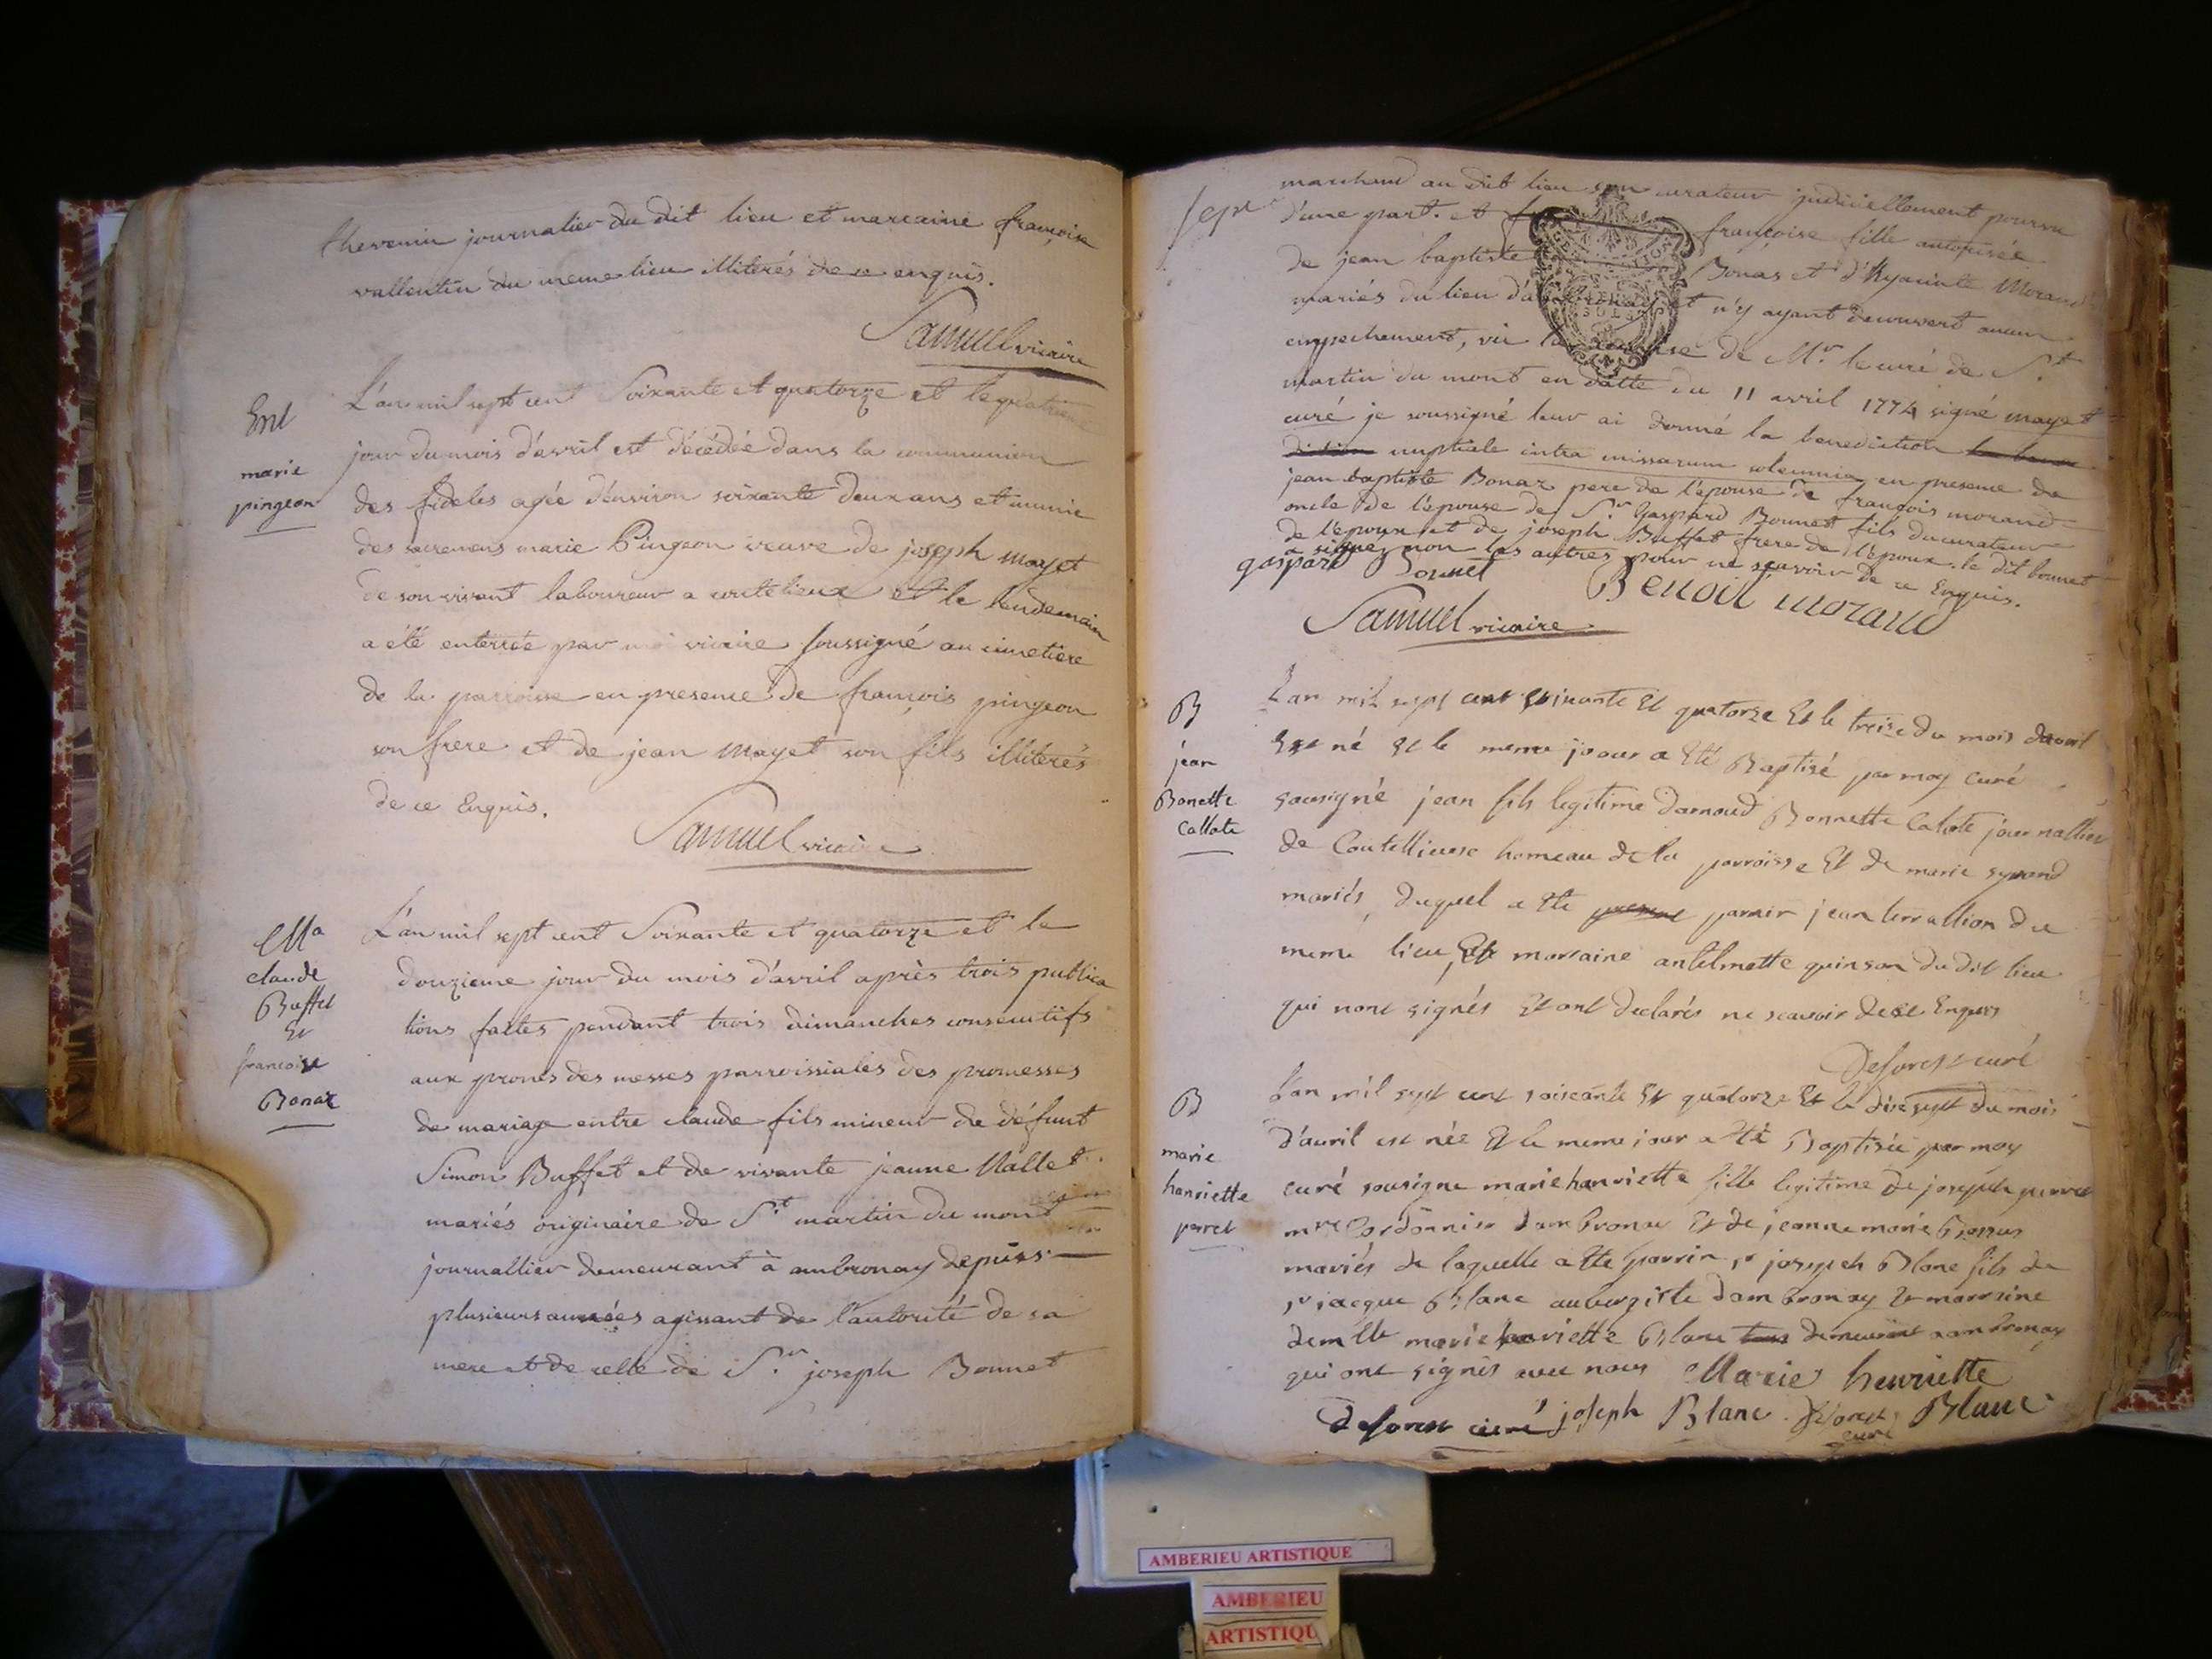 thevenin journalier du dit lieu et marraine françoise
vallentin du meme lieu illiterés de ce enquis.
Samuel vicaire
Ent
marie
pingeon
L'an mil sept cent Soixante et quatorze et le quatrieme
jour du mois d'avril est décédée dans la communion
des fideles agée d'environ soixante deux ans et munie
des sacremens marie Pingeon veuve de joseph mayet
de son vivant laboureur a coutelieux et le lendemain
a été enterrée par moi vicaire soussigné au cimetiere
de la parroisse en presence de françois pingeon
son frere et de jean mayet son fils illiterés
de ce Enquis.
Samuel vicaire
Ma
claude
Buffet
Et
francoise
Bonaz
L'an mil sept cent Soixante et quatorze et le
douzieme jour du mois d'avril après trois publica
tions faites pendant trois dimanches consecutifs
aux prones des messes parroissiales des promesses
de mariage entre claude fils mineur de défunt
Simon Buffet et de vivante jeanne Mallet
mariés originaire de S.t martin du mont
journallier demeurant à ambronay depuis
plusieurs années agissant de l'autorité de sa
mere et de celle de S.r joseph Bonnet
sept
marchand au dit lieu son curateur judiciellement pourvu
d'une part. et françoise fille autorisée
de jean baptiste Bonas et d'hyacinte Morand
mariés du lieu d'ambronay et n'y ayant decouvert aucun
empechement, vu la remise de M.r le curé de S.t
martin du mont en datte du 11 avril 1774 signé mayet
curé je soussigné leur ai donné la benediction
nuptiale intra missarum solemnia en presence de
jean baptiste Bonaz pere de l'epouse de françois morand
oncle de l'epouse de S.r Gaspard Bonnet fils du curateur
de l'epoux et de joseph Buffet frere de l'epoux. le dit bonnet
a signez non les autres pour ne sçavoir de ce Enquis.
gaspard Bonnet Benoit morand
Samuel vicaire
B
jean
Bonette
Callate
L'an mil sept cent soixante Et quatorze Et le treize du mois davril
Est né Et le meme jour a Eté Baptisé par moy curé
sousigné jean fils legitime darnaud Bonnette Calate journallier
de Coutellieuse hameau de la parroisse Et de marie
mariés, duquel a Eté parrin jean terrallion du
meme lieu, Et marraine antelmette quinson du dit lieu
qui nont signés Et ont declarés ne scavoir de ce Enquis
Deforest curé
B
marie
henriette
perret
L'an mil sept cent soixante Et quatorze Et le dixsept du mois
d'avril est née Et le meme jour a Eté Baptisée par moy
curé sousigne marie henriette fille legitime de joseph perret
m.re Cordonnier dambronay Et de jeanne marie
mariés de laquelle a Eté parrin, s.r joseph Blanc fils de
s.r jacque Blanc aubergiste dambronay Et marraine
dem.lle marie henriette Blanc demeurant a ambronay
qui ont signés avec nous Marie henriette
deforest curé joseph Blanc. Deforest Blanc
curé
AMBERIEU ARTISTIQUE
AMBERIEU
ARTISTIQU